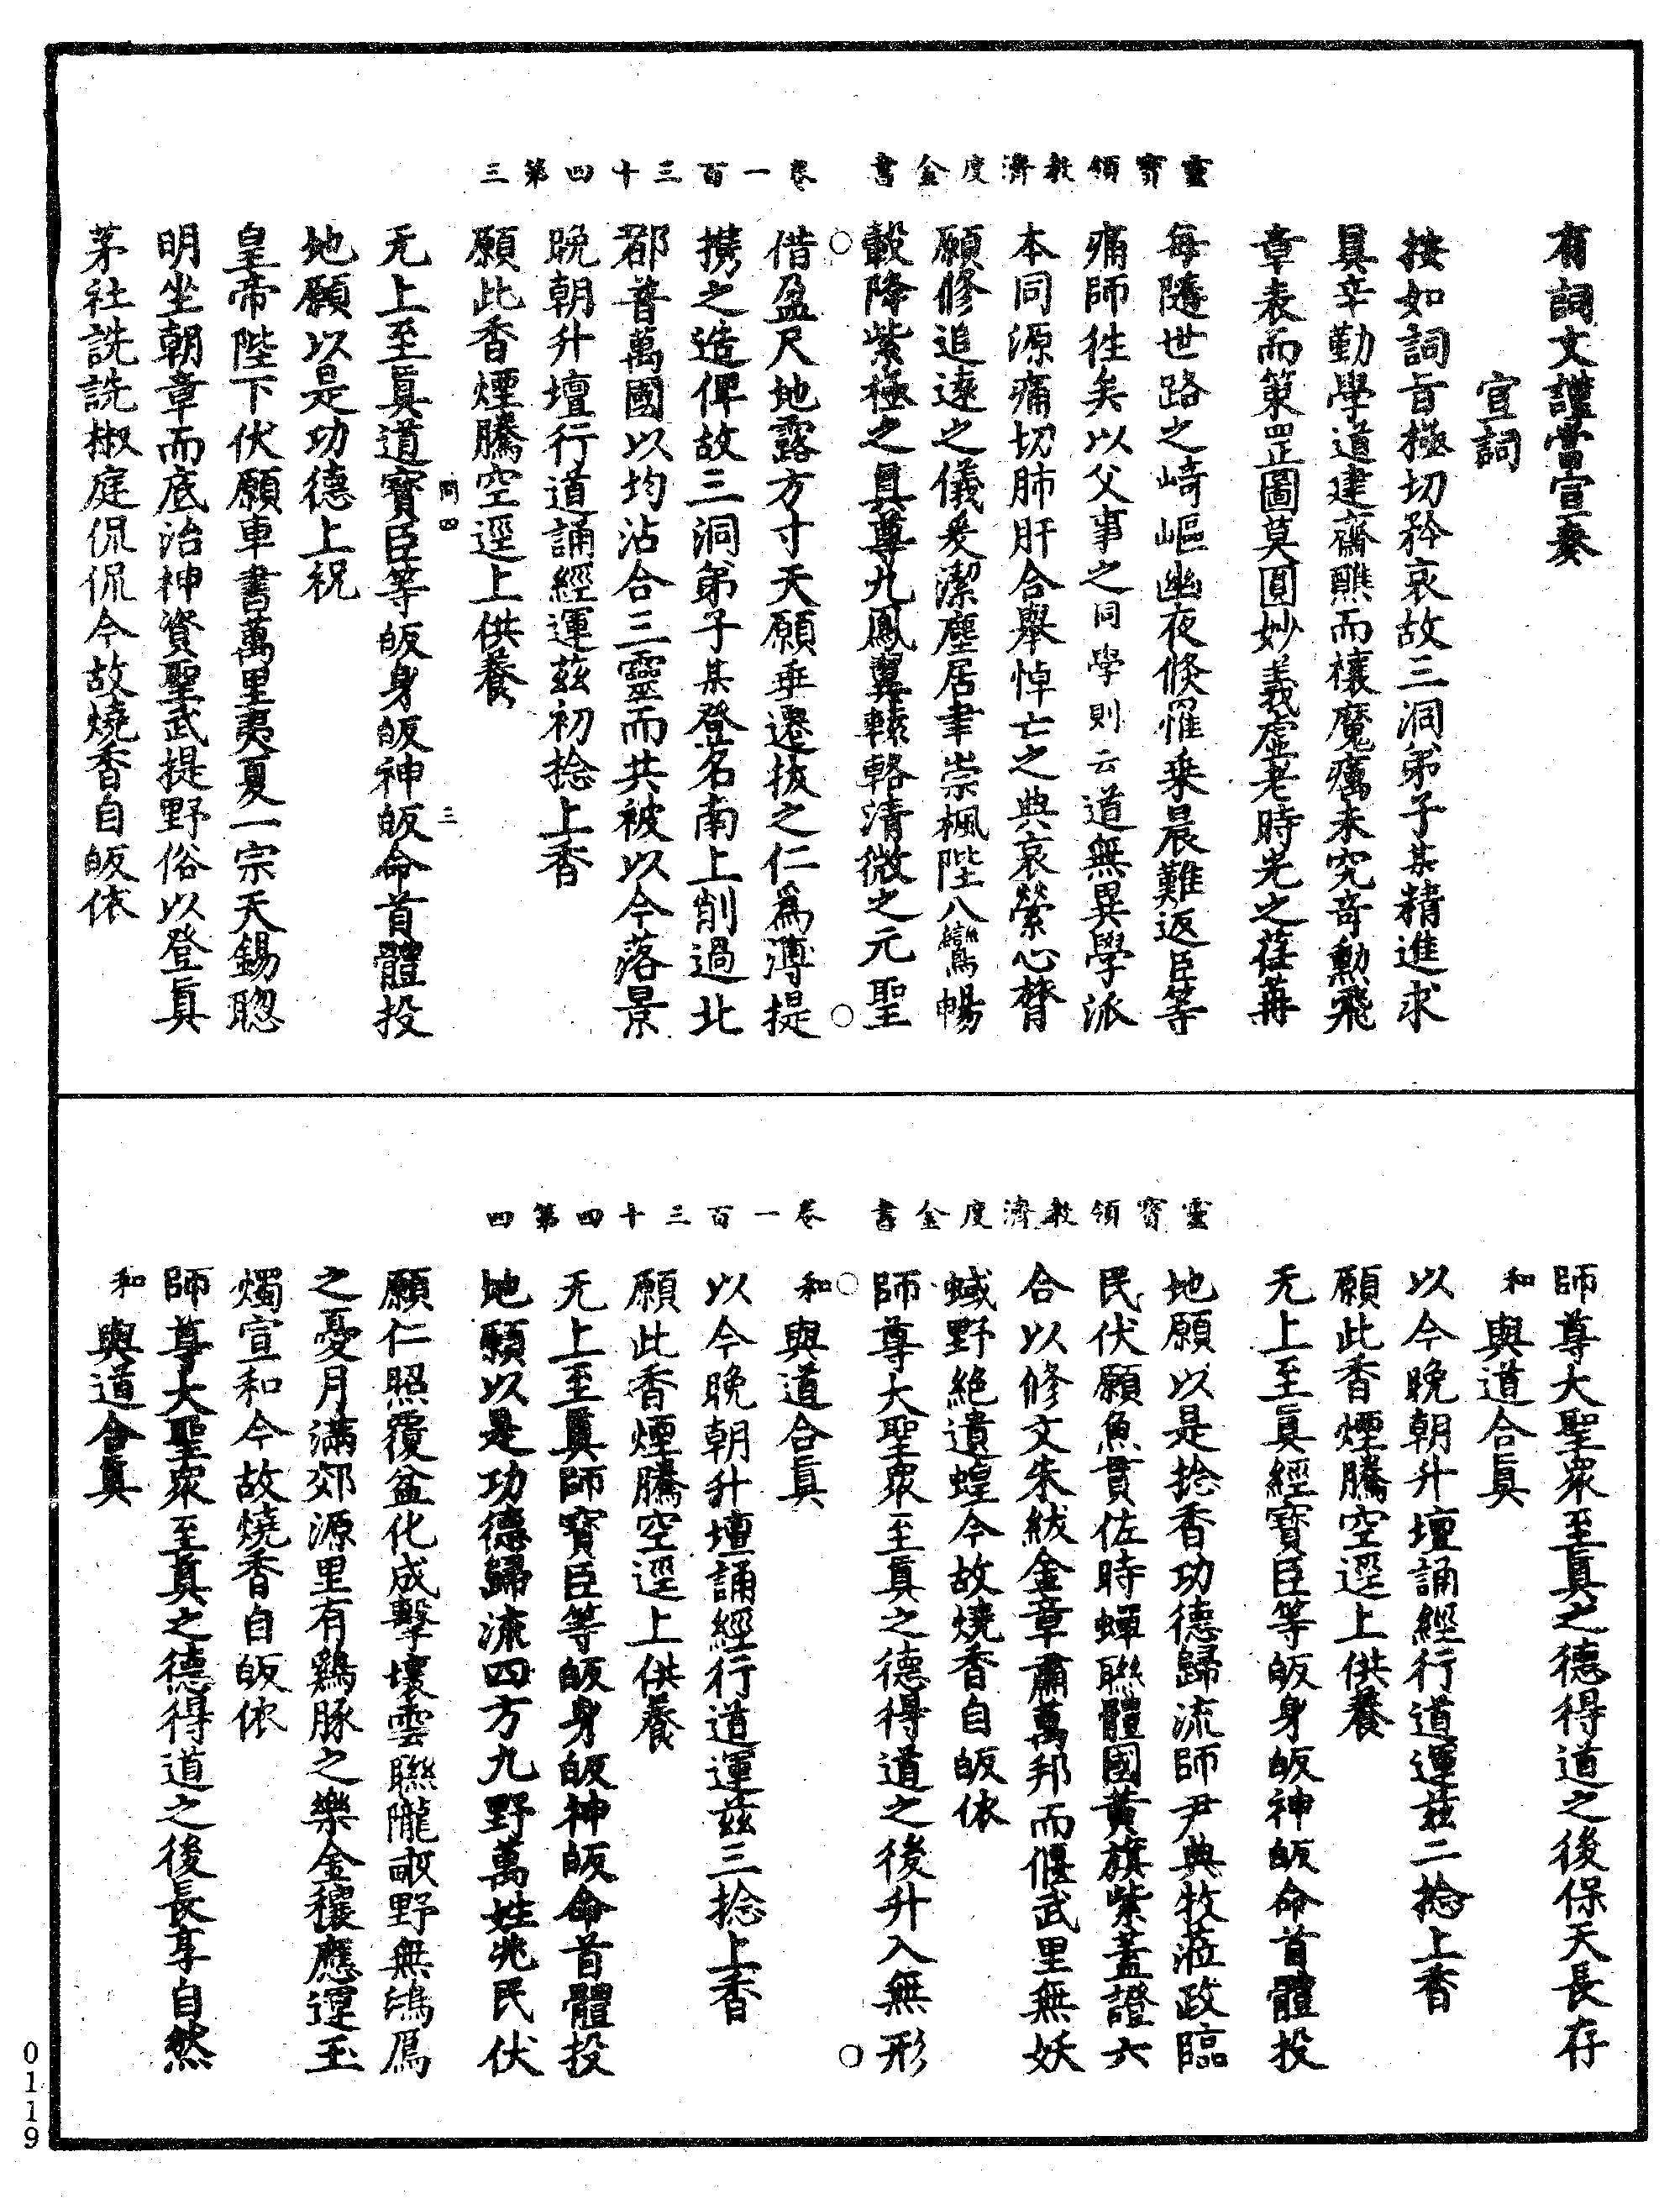 靈寶領教濟度金書　卷一百三十四第三
有詞文謹當宣奏
宣詞
按如詞旨極切矜哀故三洞弟子某精進求
眞辛勤學道建齋醮而禳魔癘未究奇勲飛
章表而策罡圖莫圓妙義虛老時光之荏苒
每隨世路之崎嶇幽夜倐罹乗晨難返臣等
痛師徃矣以父事之同學則云道無異學派
本同源痛切肺肝合舉悼亡之典哀縈心膂
願修追遠之儀爰潔塵居聿崇楓陛八鸞暢
轂降紫極之眞尊九鳳翼轅輅清微之元聖
借盈尺地露方寸天願垂遷拔之仁爲薄提
攜之造俾故三洞弟子某登名南上削過北
郡普萬國以均沾合三靈而共被以今落景
晩朝升壇行道誦經運茲初捻上香
願此香煙騰空逕上供養
无上至眞道寶臣等皈身皈神皈命首體投
地願以是功德上祝
皇帝陛下伏願車書萬里夷夏一宗天錫聰
明坐朝章而底治神資聖武提野俗以登眞
茅社詵詵椒庭侃侃今故燒香自皈依
同四
三
靈寶領教濟度金書　卷一百三十四第四
師尊大聖衆至眞之德得道之後保天長存
和與道合眞
以今晩朝升壇誦經行道運茲二捻上香
願此香煙騰空逕上供養
无上至眞經寶臣等皈身皈神皈命首體投
地願以是捻香功德歸流師尹典牧蒞政臨
民伏願魚貫佐時蟬聯體國黃旗紫蓋證六
合以修文朱紱金章肅萬邦而偃武里無妖
蜮野絶遺蝗今故燒香自皈依
師尊大聖衆至眞之德得道之後升入無形
和與道合眞
以今晩朝升壇誦經行道運茲三捻上香
願此香煙騰空逕上供養
无上至眞師寶臣等皈身皈神皈命首體投
地願以是功德歸流四方九野萬姓兆民伏
願仁照覆盆化成擊壤雲聯隴畝野無鴻鴈
之憂月滿郊源里有鷄豚之樂金穰應運玉
燭宣和今故燒香自皈依
師尊大聖衆至眞之德得道之後長享自然
和與道合眞
0119